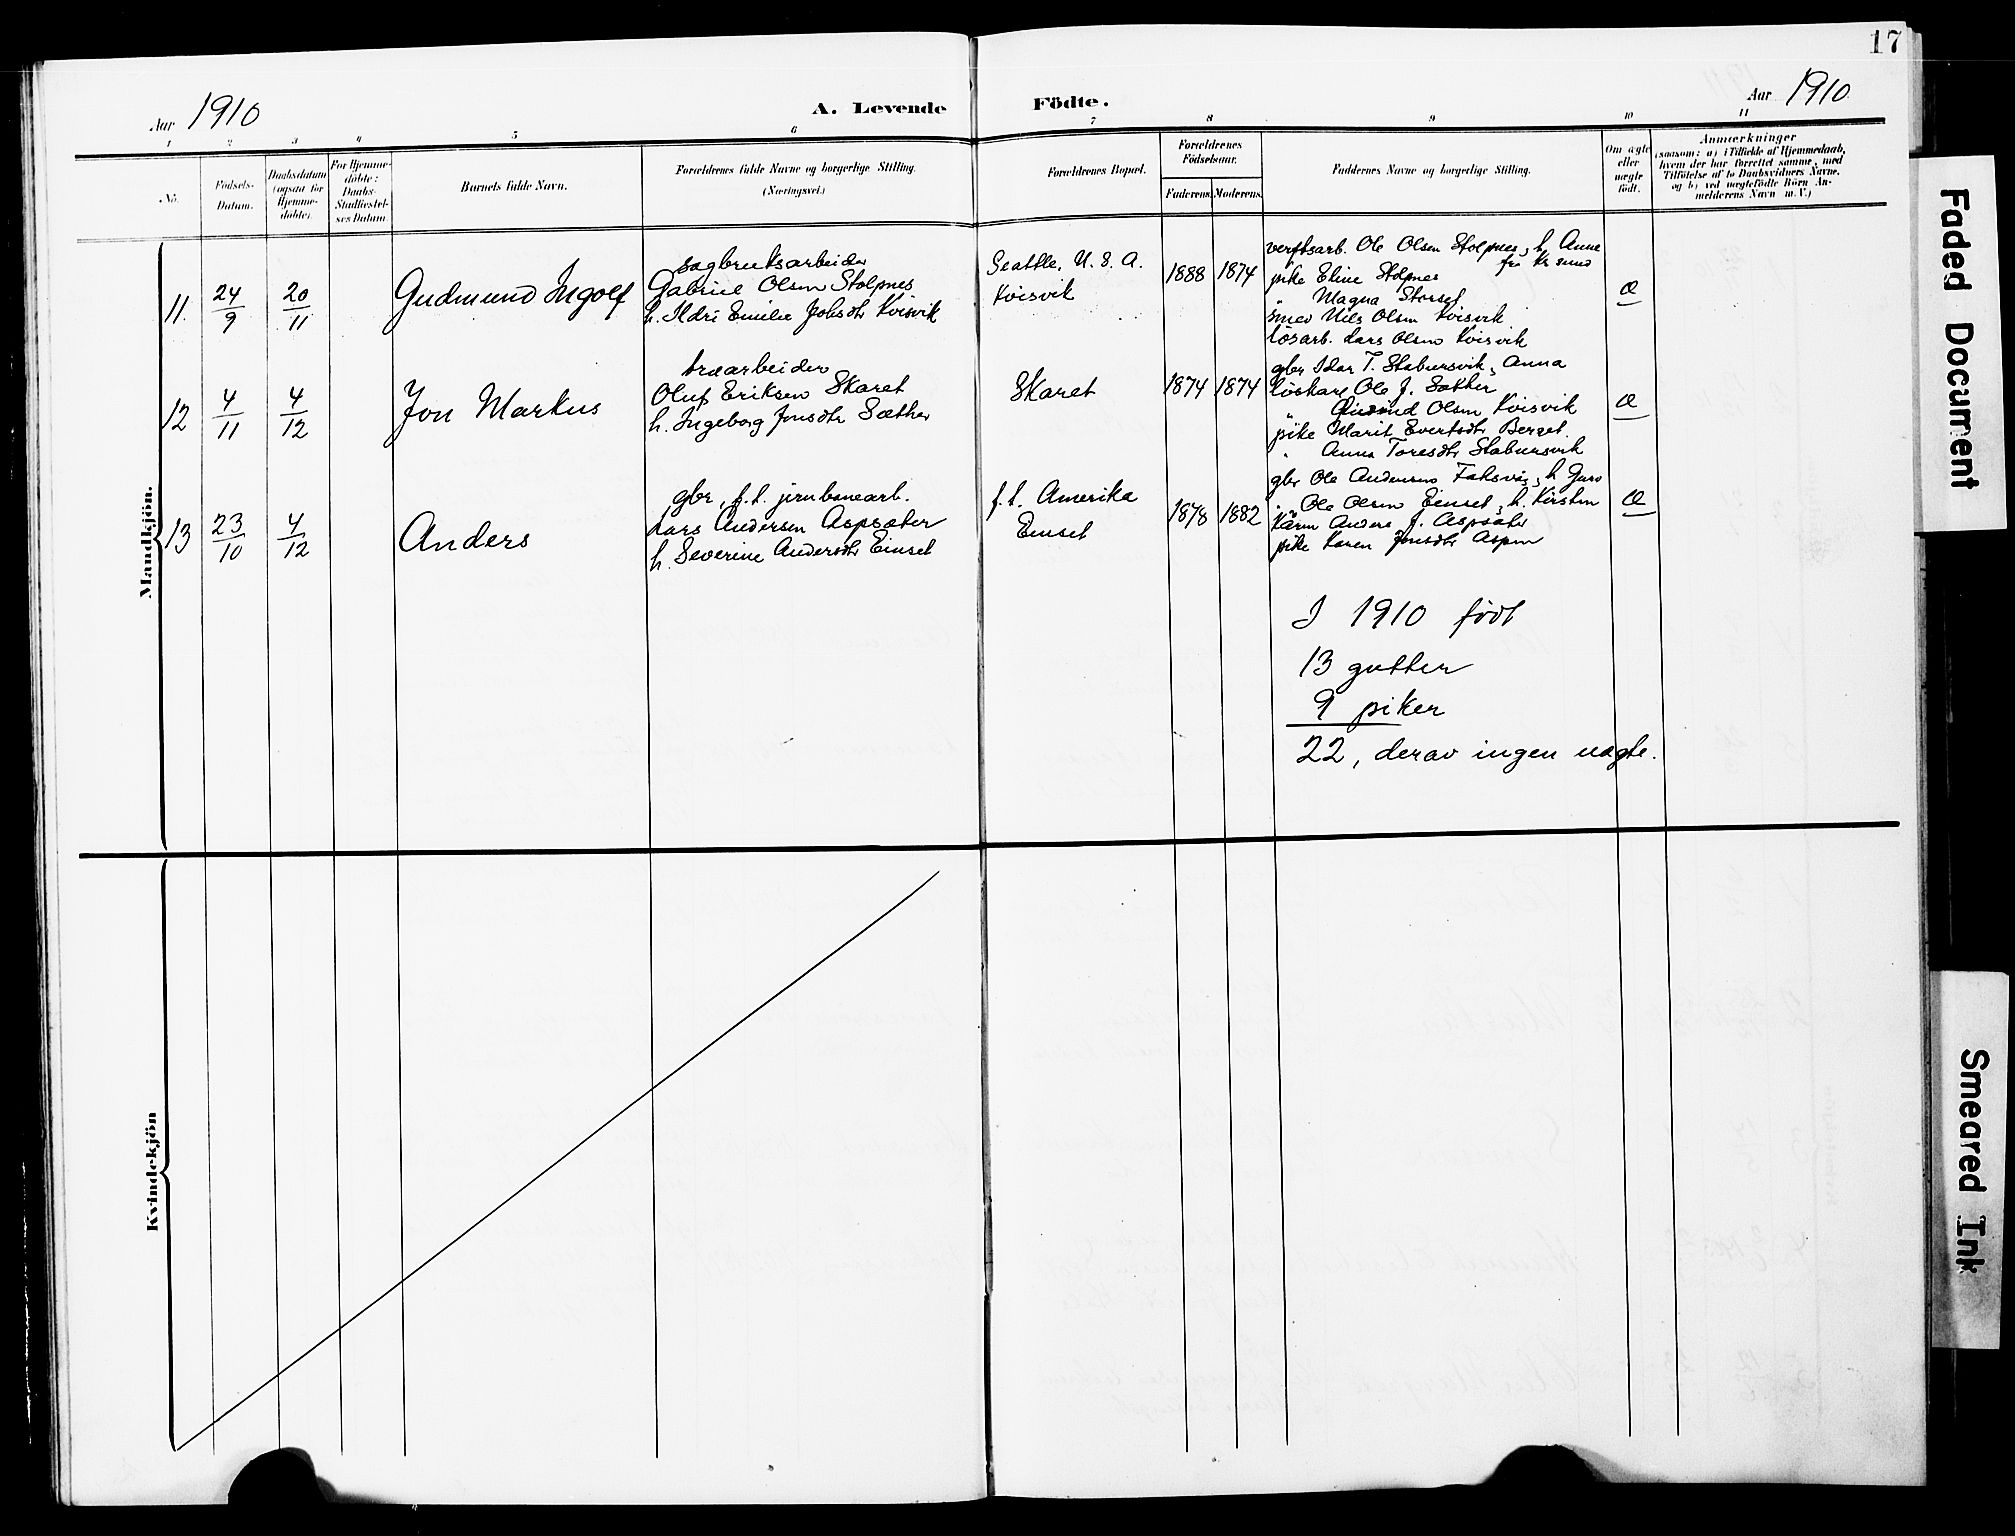 17
Aar 1910
A. Levende Födte.
Aar 1910
1 2 3 4 5 6 7 8 9 10 11
No.
Födsels-
Datum.
Daabsdatum
(ogsaa for
Hjemme-
döbte).
For Hjemme-
döbte:
Daabs-
Stadfæstel-
ses Datum
Barnets fulde Navn.
Forældrenes fulde Navne og borgerlige Stilling.
(Næringsvei.)
Forældrenes Bopæl.
Forældrenes
Födselsaar.
Faderens. Moderens.
Faddernes Navne og borgerlige Stilling.
Om ægte
eller
uægte
födt.
Anmærkninger
(saasom: a) i Tilfælde af Hjemmedaab,
hvem der har forrettet samme, med
Tilföielse af to Daabsvidners Navne,
og b) ved uægtefödte Börn An-
melderens Navn m. V.)
Mandkjön.
11. 24/9 20/11 Gudmund Ingolf
sagbruksarbeider
Gabriel Olsen Stolpnes
h. Ildri Emilie Johsdtr Kvisvik
Seattle, U. S. A.
Kvisvik
1888 1874
verftsarb. Ole Olsen Stolpnes, h. Anne
fra Kr sund
pike Eline Stolpnes
" Magna Storset
smed Nils Olsen Kvisvik
løsarb. Lars Olsen Kvisvik
Æ
12 4/11 4/12 Jon Markus
træarbeider
Oluf Eriksen Skaret
h. Ingeborg Jonsdtr Sæther
Skaret
1874 1874
gbr Idar T. Stabursvik, Anna
løskarl Ole J. Sæther
" Olsen Kvisvik
pike Marit Evertsdtr Berset
" Anna Toresdtr Stabursvik
Æ
13 23/10 4/12 Anders
gbr, f.t. jernbanearb.
Lars Andersen Aspsæter
h. Severine Andersdtr Einset
f.t. Amerika
Einset
1878 1882
gbr Ole Andersen Faksvåg, h. Guro
" Ole Olsen Einset, h. Kirsten
Anders J. Aspsæter
pike Karen Jonsdtr Aspen
Æ
I 1910 födt
13 gutter
9 piker
22, derav ingen uægte.
Kvindekjön
Faded Document
Smeared Ink